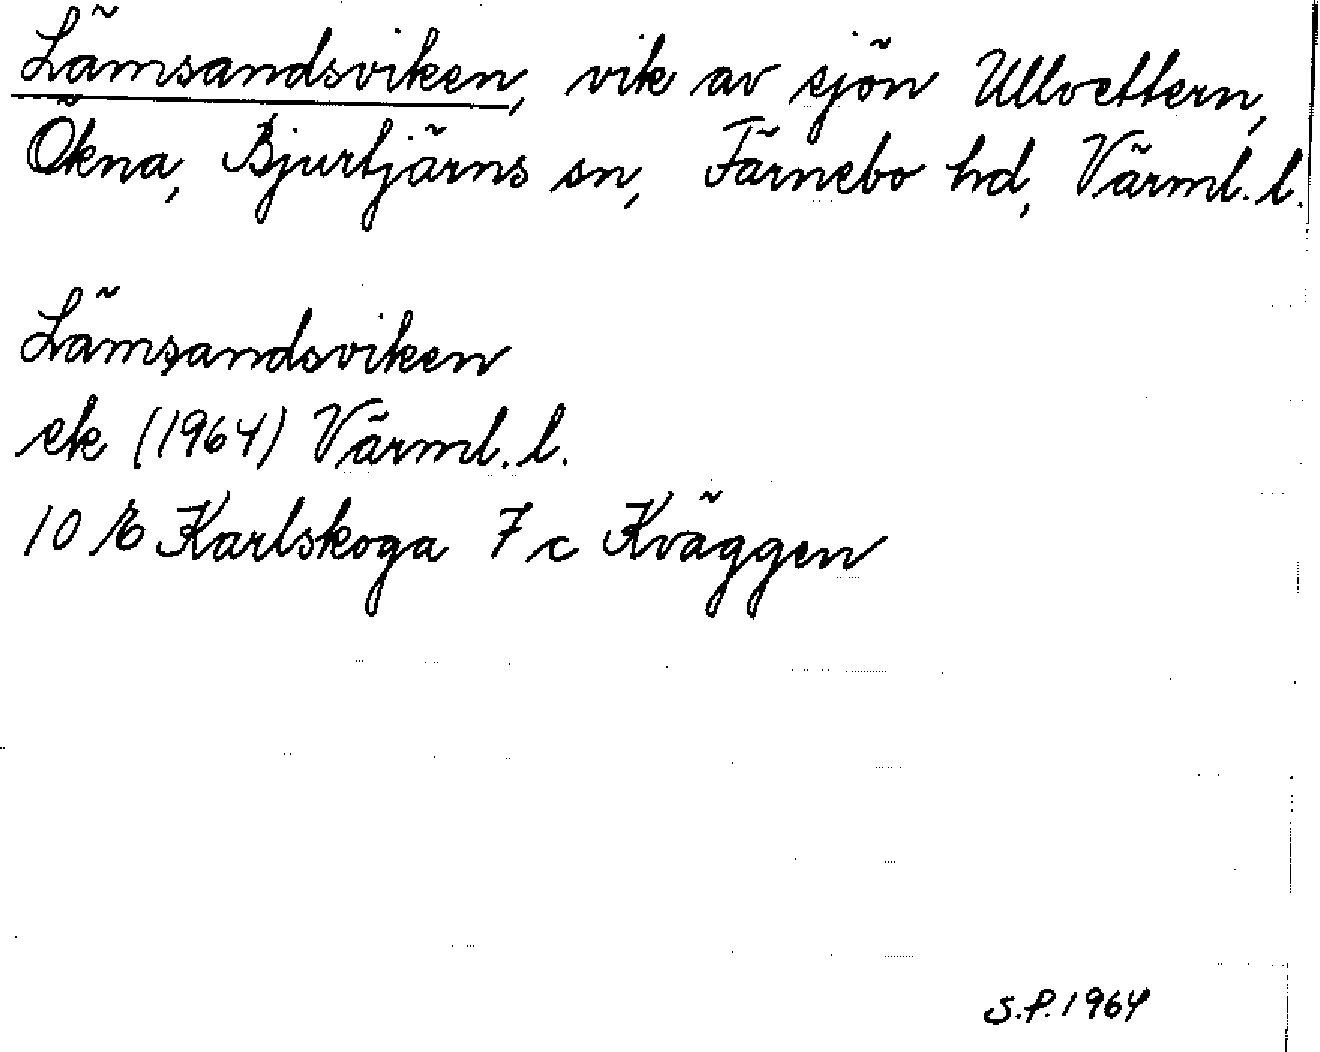 Lämsandsviken, vik av sjön Ullvettern,
Ökna, Bjurtjärns sn, Färnebo hd, Värml. l.
Lämsandsviken
ek (1964) Värml. l.
10 E Karlskoga 7 c Kväggen
S.P. 1964